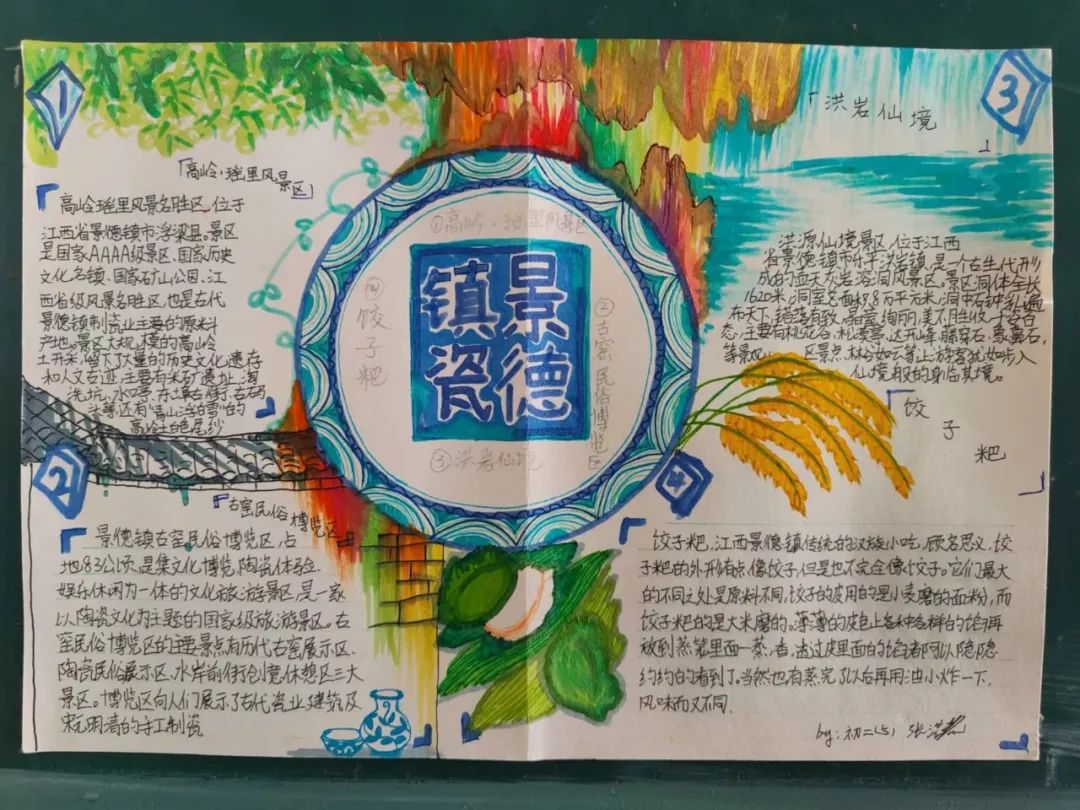 1
「高岭·瑶里风景区」
高岭瑶里风景名胜区,位于
江西省景德镇市浮梁县。景区
是国家AAAA级景区、国家历史
文化名镇、国家矿山公园、江
西省级风景名胜区,也是古代
景德镇制瓷业主要的原料
产地。景区大规模的高岭
土开采,留下了大量的历史文化遗存
和人文古迹,主要有采矿遗址、淘
洗坑、水口亭、东埠古街、古码
头等还有"青山浮白雪"的
高岭土白色尾砂
2
「古窑民俗博览区」
景德镇古窑民俗博览区占
地83公顷,是集文化博览、陶瓷体验、
娱乐休闲为一体的文化旅游景区,是一家
以陶瓷文化为主题的国家级旅游景区。古
窑民俗博览区的主要景点有历代古窑展示区、
陶瓷民俗展示区、水岸前街创意休憩区三大
景区。博览区向人们展示了古代瓷业建筑及
宋元明清的手工制瓷
景德
镇瓷
①高岭·瑶里风景区
②古窑民俗博览区
③洪岩仙境
④饺子粑
3
「洪岩仙境」
洪源仙境景区,位于江西
省景德镇市乐平洪岩镇,是一个古生代形
成的岩溶洞风景区。景区洞体全长
1620米,洞室总面积8万平方米,洞中石钟乳遍
布天下,错落有致,晶莹绚丽,美不胜收,千姿百
态,主要有桃花岭、
等景观
仙境般的身临其境。
4
「饺子粑」
饺子粑,江西景德镇传统的汉族小吃,顾名思义,饺
子粑的外形有点像饺子,但是也不完全像饺子。它们最大
的不同之处是原料不同,饺子的皮用的是小麦磨的面粉,而
饺子粑的是大米磨的。薄薄的皮包上各种各样的馅再
放到蒸笼里面一蒸,香,透过皮里面的馅都可以隐隐
约约的看到了。当然也有蒸完了以后再用油小炸一下,
风味而又不同.
by:初二(5) 张